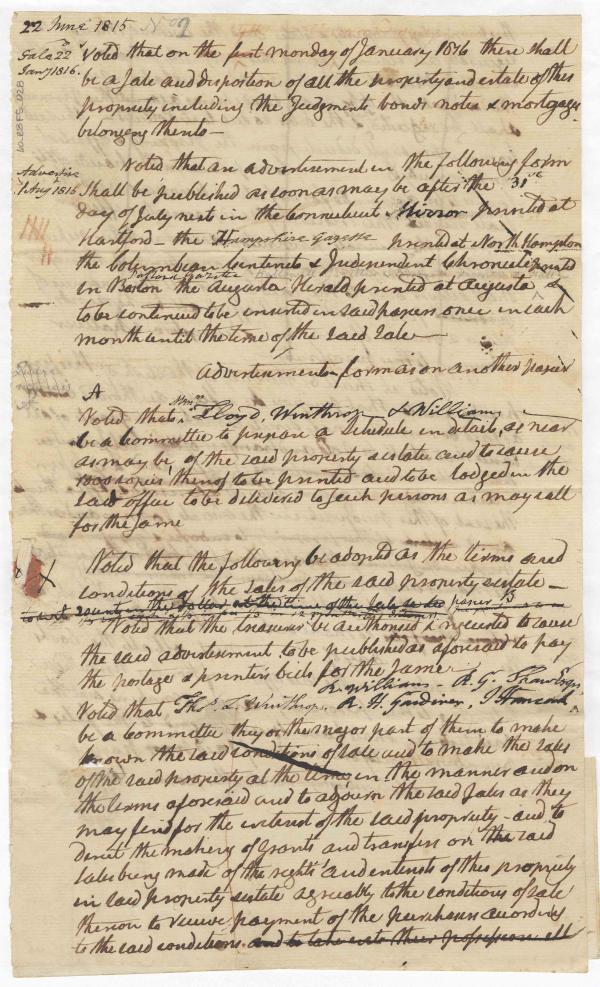 22 June 1815 No 2
Sale 22
Jany 1816.
Voted that on the first monday of January 1816 there shall
be a sale and disposition of all the property and estate of this
propriety including the Judgments bonds notes & mortgages
belonging thereto—
Advertise
1 Aug 1815
Voted that an advertisement in the following form
shall be published as soon as may be after the 31st
day of July next in the Connecticut Mirror printed at
Hartford— the Hampshire Gazette printed at North Hampton
the Columbian Centinel & Independent Chronicle printed
in Boston the Augusta Herald printed at Augusta &
to be continued to be inserted in said papers once in each
month until the time of the said sale—
Advertisement form as on another paper
A
Voted that Messrs Lloyd, Winthrop & Williams
be a Committee to prepare a schedule in detail, as near
as may be, of the said property & estate and to cause
1000 copies thereof to be printed and to be lodged in the
said office to be delivered to such persons as may call
for the same
X
Voted that the following be adopted as the terms and
conditions of the sales of the said property & estate—
to wit paper B
Voted that the treasurer be authorised & requested to cause
the said advertisement to be published as aforesaid to pay
the postage & printers bills for the same
R. Williams— R. G. Shaw Esqs
Voted that Thos. L. Winthrop, R. H. Gardiner, J Hancock
be a Committee they or the major part of them to make
known the said conditions of sale and to make the sales
of the said property at the time, in the manner and on
the terms aforesaid and to adjourn the said sales as they
may find for the interest of the said propriety— and to
direct the making of grants and transfers on the said
sales being made of the rights and interests of this propriety
in said property & estate agreably to the conditions of sale
thereon to receive payment of the purchasers according
to the said conditions and to take into their possession all